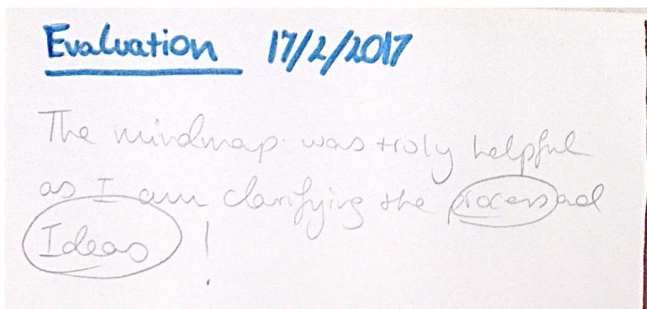 Evaluation 17/2/2017
The mindmap was truly helpful
as I am clarifying the process and
Ideas !